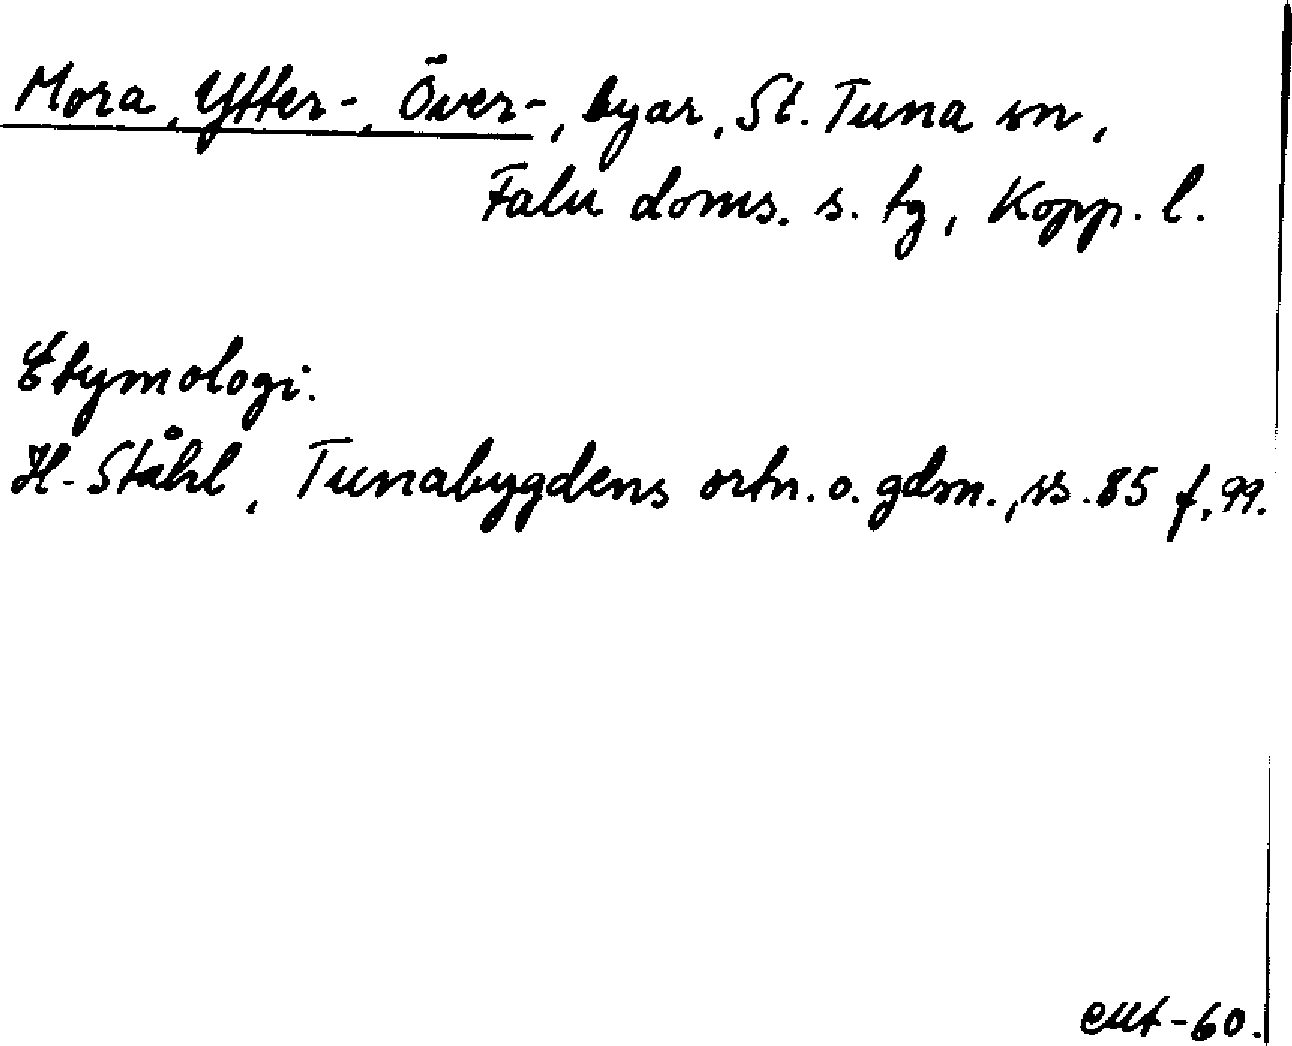 Mora, Ytter-, Över-, byar, St. Tuna sn,
Falu doms. s. tg, Kopp. l.
Etymologi.
H. Ståhl, Tunabygdens ortn. o. gdm., ss. 85 f, 99.
-60.